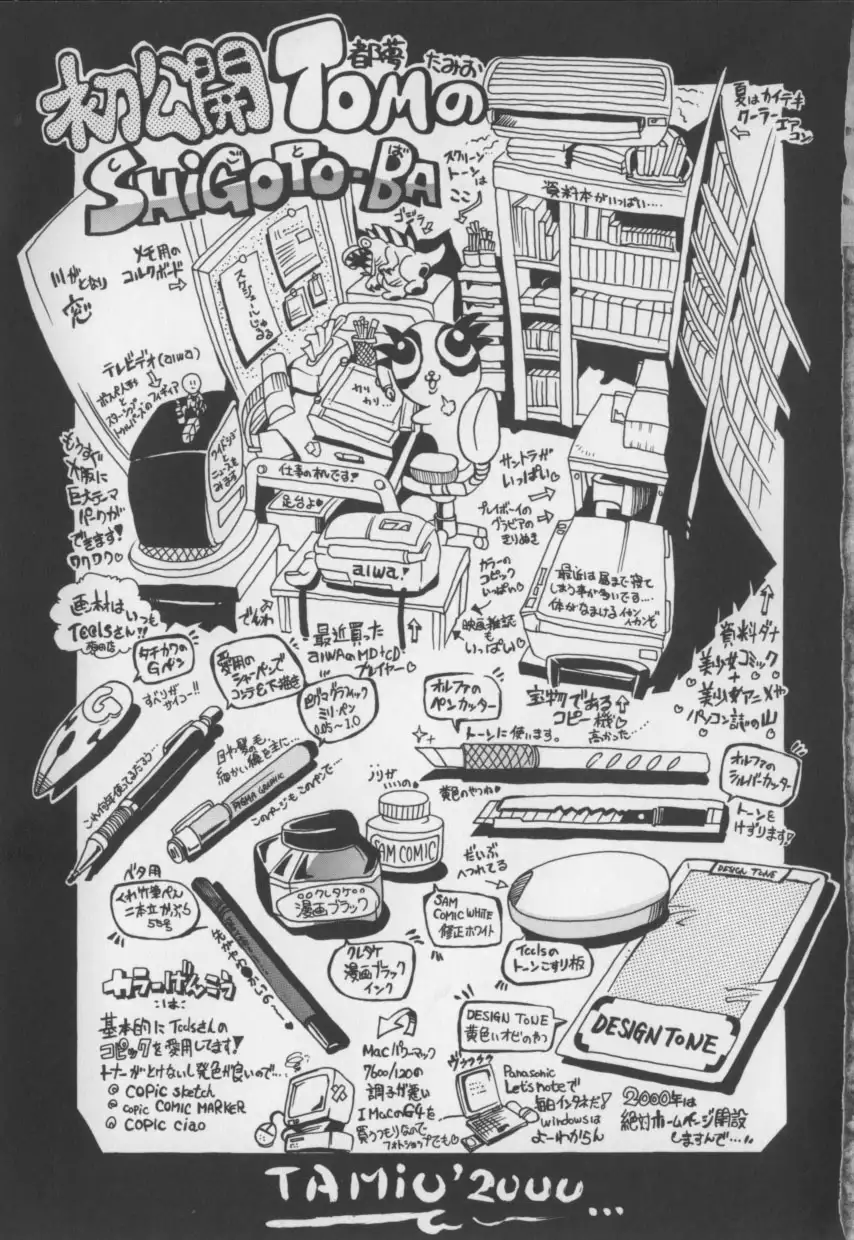 初公開 TOMの
都夢 たみお
SHiGOTO-BA
しごとば
スクリーン
トーンは
ココ
夏はカイテキ
クーラーエアコン
資料本がいっぱい‥‥
ゴジラ
メモ用の
コルクボード
川がとなり
窓
スケジュール
テレビデオ(aiwa)
もうすぐ
大阪に
巨大テーマ
パークが
できます!
ワクワク♡
ニュースを
みます
カリ
カリ‥
仕事の机です!
足台よ♡
サントラが
いっぱい♡
プレイボーイの
グラビアの
きりぬき
カラーの
コピック
いっぱい♡
映画雑誌
も
いっぱい♡
aiwa!
最近買った
aiwaのMD+CD
プレイヤー♡
最近は昼まで寝て
しまう事が多いです‥‥
体がなまける イカン
イカンぞ
宝物である
コピー機♡
高かった‥‥
資料ダナ
美少女コミック
+
美少女アニメや
パソコン誌の山
画材は
いつも
Toolsさん!!
でもね
タチカワの
Gペン
すべりが
サイコー!!
愛用の
シャーペンで
コンテ&下描き
ピグマグラフィック
ミリ・ペン
0.05〜1.0
目や髪の毛
細かい線を主に‥
PIGMA GRAPHIC
このページもこのペンで‥
オルファの
ペンカッター
トーンに使います。
黄色のやつね♡
オルファの
シルバーカッター
トーンを
けずります!
ノリが
いいの♡
SAM COMIC
SAM
COMIC WHITE
修正ホワイト
クレタケ
漫画ブラック
クレタケ
漫画ブラック
インク
だいぶ
へつれてる
Toolsの
トーンこすり板
DESIGN TONE
DESIGN TONE
DESIGN TONE
黄色いオビのやつ
ベタ用
くれ竹筆ぺん
二本立かぶら
55号
カラーげんこう
は
基本的にToolsさんの
コピックを愛用してます!
トナーがとけないし発色が良いので‥‥
@ COPiC sketch
@ COPiC COMIC MARKER
@ COPiC ciao
Macパワーマック
7600/120の
調子が悪い
IMacのG4を
買うつもりなので
フォトショップでも♡
ヴゥゥゥゥ
Panasonic
Let's noteで
毎日インタネだ!
windowsは
よーわからん
2000年は
絶対ホームページ開設
しますんで‥‥
TAMiO '2000...